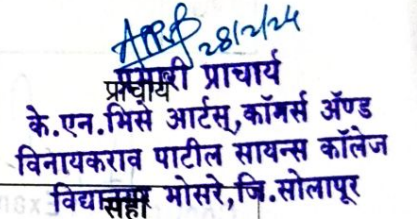 28/2/24
प्रभारी प्राचार्य
प्राचार्य
के.एन.भिसे आर्टस्,कॉमर्स ॲण्ड
विनायकराव पाटील सायन्स कॉलेज
विद्यानगर भोसरे,जि.सोलापूर
सही